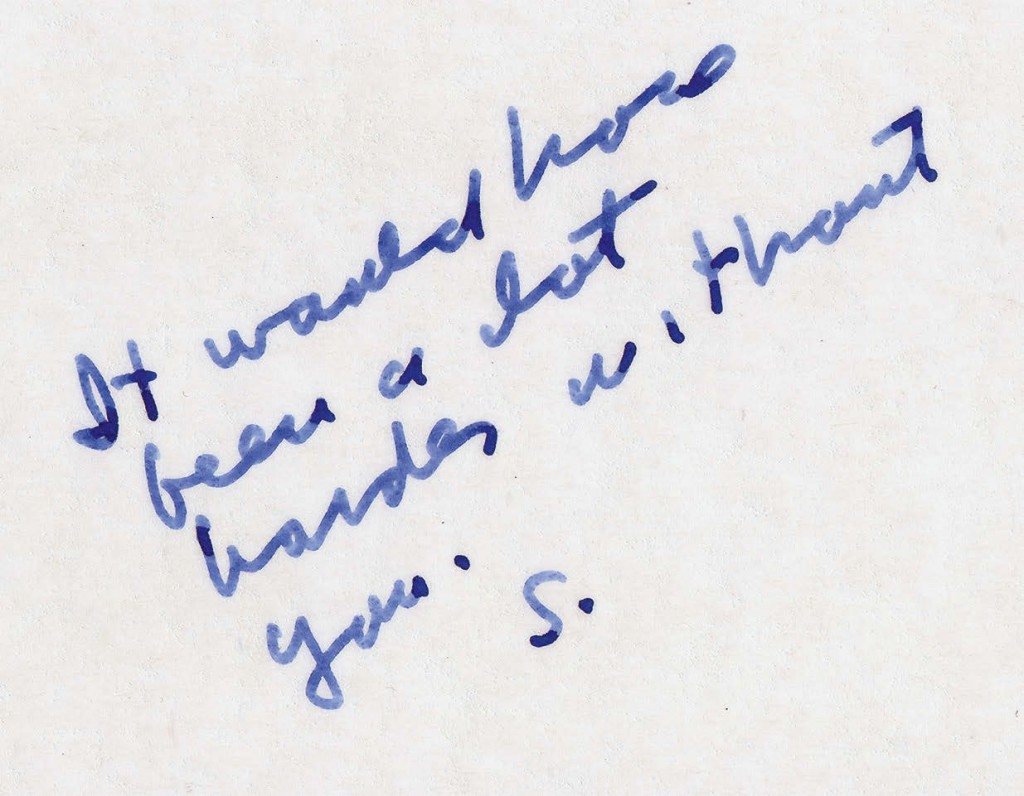 It would have
been a lot
harder without
you. S.